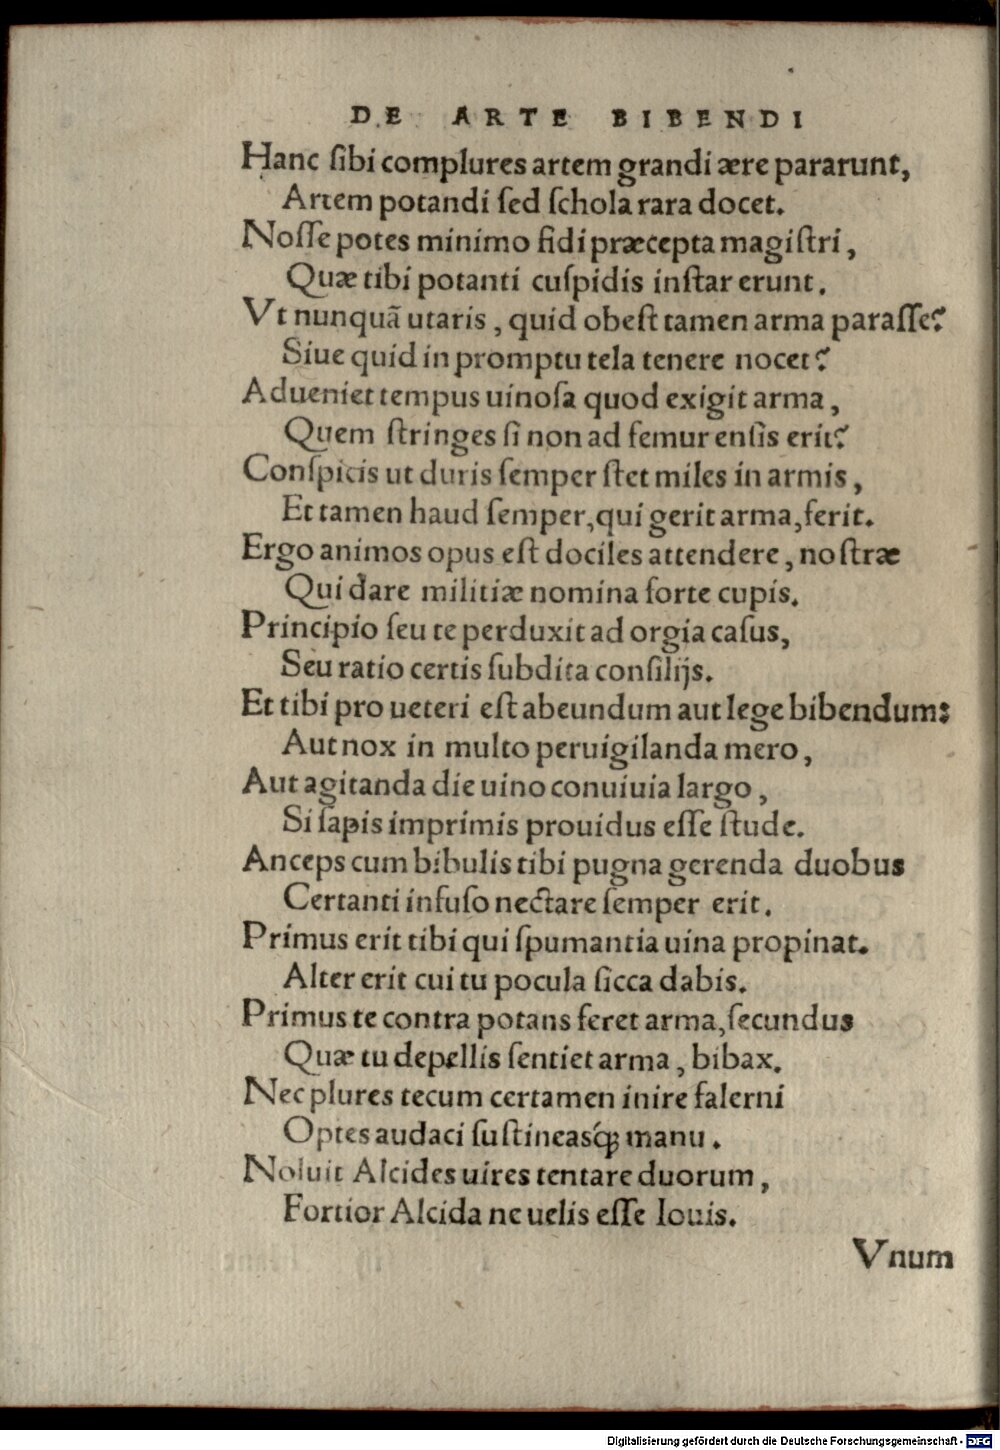 DE ARTE BIBENDI
Hanc ſibi complures artem grandi ære pararunt,
Artem potandi ſed ſchola rara docet.
Noſſe potes minimo fidi præcepta magiſtri,
Quæ tibi potanti cuſpidis inſtar erunt.
Vt nunquã utaris, quid obeſt tamen arma paraſſe?
Siue quid in promptu tela tenere nocet?
Adueniet tempus uinoſa quod exigit arma,
Quem ſtringes ſi non ad femur enſis erit?
Conſpicis ut duris ſemper ſtet miles in armis,
Et tamen haud ſemper, qui gerit arma, ferit.
Ergo animos opus eſt dociles attendere, noſtræ
Qui dare militiæ nomina forte cupis.
Principio ſeu te perduxit ad orgia caſus,
Seu ratio certis ſubdita conſilijs.
Et tibi pro ueteri eſt abeundum aut lege bibendum:
Aut nox in multo peruigilanda mero,
Aut agitanda die uino conuiuia largo,
Si ſapis imprimis prouidus eſſe ſtude.
Anceps cum bibulis tibi pugna gerenda duobus
Certanti infuſo nectare ſemper erit.
Primus erit tibi qui ſpumantia uina propinat.
Alter erit cui tu pocula ſicca dabis.
Primus te contra potans feret arma, ſecundus
Quæ tu depellis ſentiet arma, bibax.
Nec plures tecum certamen inire falerni
Optes audaci ſuſtineasq́ꝫ manu.
Noluit Alcides uires tentare duorum,
Fortior Alcida ne uelis eſſe Iouis.
Vnum
Digitalisierung gefördert durch die Deutsche Forschungsgemeinschaft - DFG